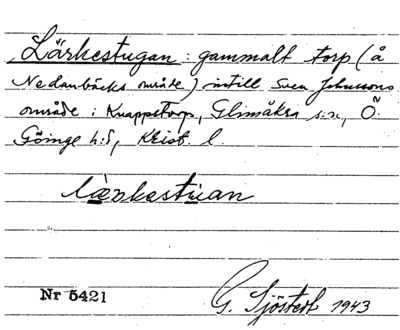 Lärkestugan: gammalt torp (å
Nedanbäcks område) intill Sven Johnssons
område i Knappstorp, Glimåkra s:n, Ö.
Göinge h:d, Krist. l.
lärkestuan
Nr 5421
G. Sjöstedt 1943